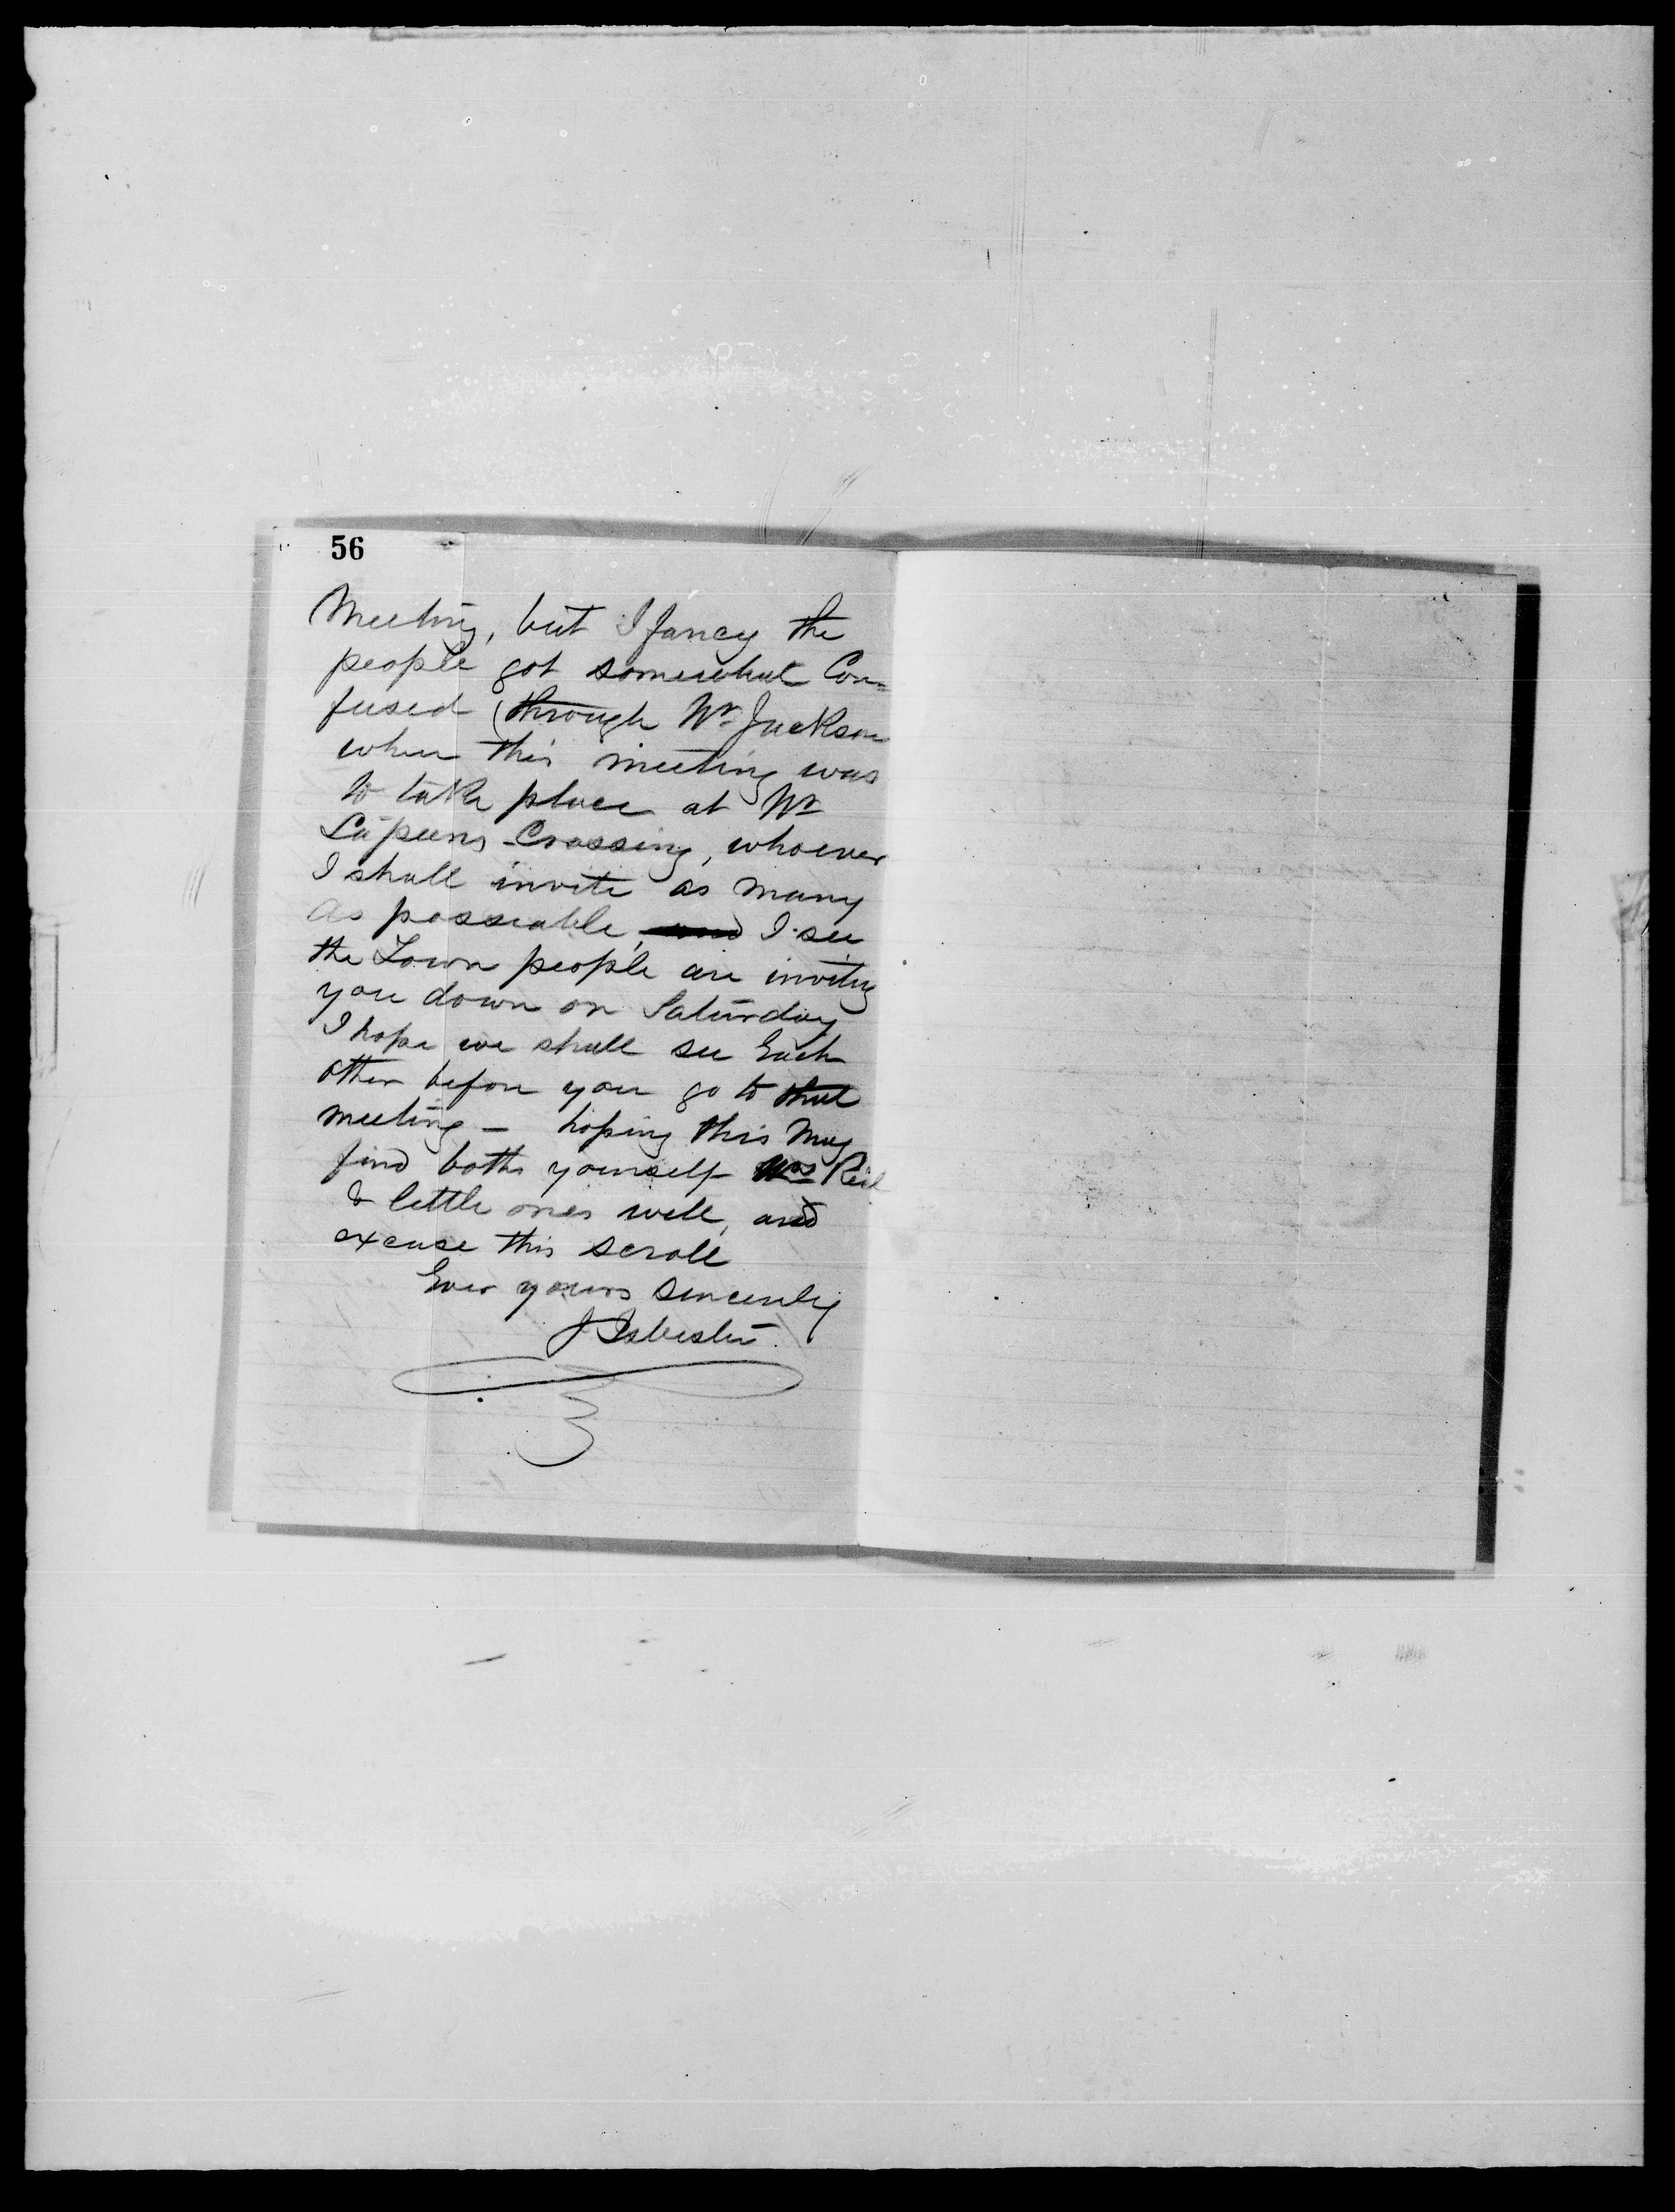 56
Meeting, but I fancy the
people got somewhat Con=
fused (through Mr Jackson
when this meeting was
to take place at Mr
Lapeens Crossing, whoever
I shall invite as many
as posseable, I see
the Town people are inviting
you down on Saturday
I hope we shall see Each
other before you go to that
meeting — hoping this may
find boths yourself Mrs Reil
& little ones well, and
excuse this scroll
Ever yours sincerely
J Isbester.